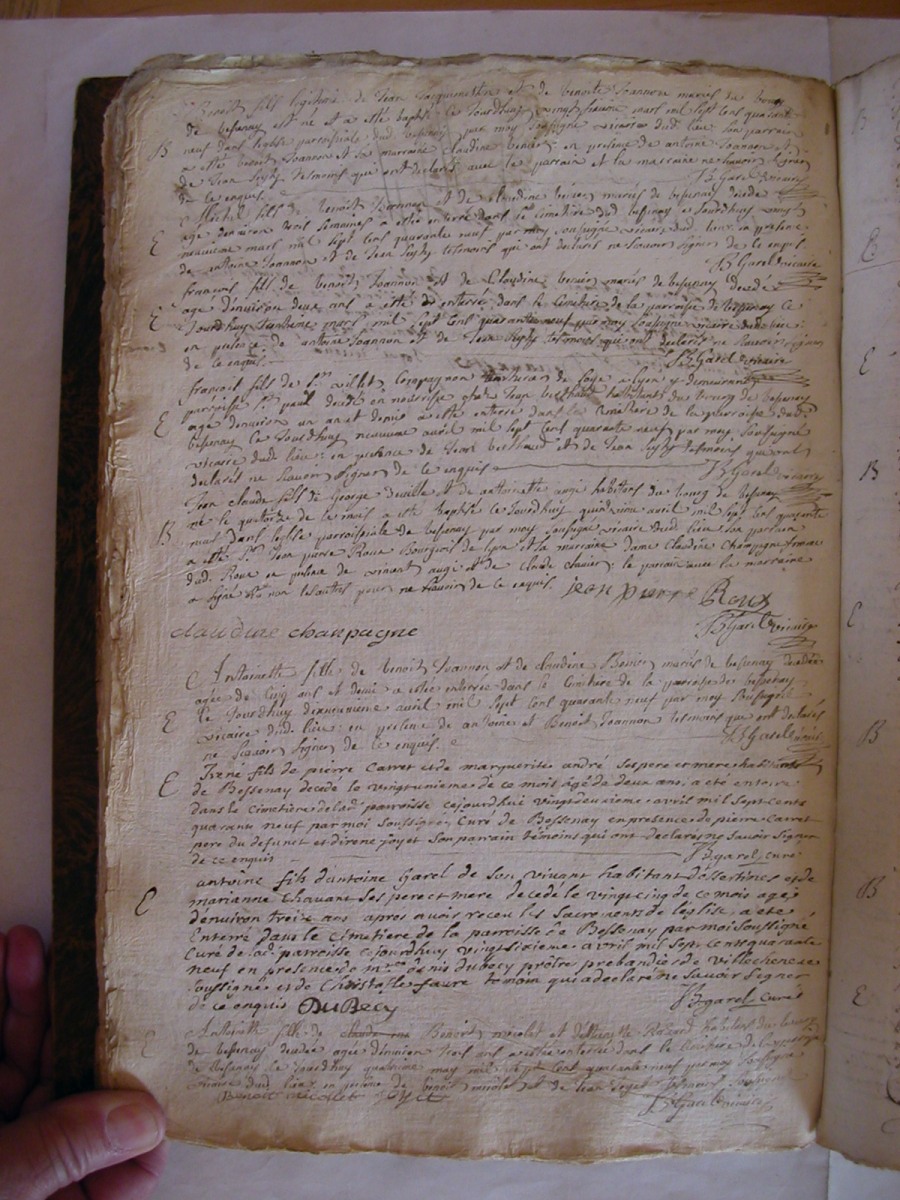 Benoit fils legitime de Jean et de benoite Joannon mariés du bourg
de bessenay est né et a esté baptisé le Jourdhuy vingt mars mil sept cens quarante
neuf dans leglise parroissiale dud. bessenay par moy soussigné vicaire dud. lieu son parrain
B a esté benoit Joannon et sa marraine claudine benier en presence de antoine Joannon et
de Jean tesmoins que ont declaré avec le parrain et la marraine ne scavoir signer
de ce enquis. BGarel vicaire
Michel fils de benoit Joannon et de claudine benier mariés de bessenay decedé
E agé denviron trois semaines a esté enterré dans le cimetiere dud. bessenay ce Jourdhuy vingt
neuvieme mars mil sept cens quarante neuf par moy soussigné vicaire dud. lieu en presence
de antoine Joannon et de Jean tesmoins qui ont declarés ne scavoir signer de ce enquis
BGarel vicaire
françois fils de benoit Joannon et de Claudine benier mariés de bessenay decedé
E agé denviron deux ans a esté enterré dans le cimetiere de la parroisse de bessenay ce
Jourdhuy mars mil sept cens quarante neuf par moy soussigné vicaire dud. lieu
en presence de antoine Joannon et de Jean tesmoins qui ont declarés ne scavoir signer
de ce enquis. BGarel vicaire
françois fils de Sr. villet de soye a lyon y demeurant
parroisse St. paul decedé en nourrisse chez Jean berthaud habitant du bourg de bessenay
E agé denviron un an et demis a esté enterré dans le cimetiere de la parroisse dud.
bessenay ce Jourdhuy neuvieme avril mil sept cens quarante neuf par moy soussigné
vicaire dud. lieu: en presence de Jean berthaud et de Jean tesmoins que ont
declarés ne scavoir signer de ce enquis
BGarel vicaire
Jean claude fils de George deville et de antoinette augi habitans du bourg de bessenay
né le quatorze de ce mois a esté baptisé le Jourdhuy avril mil sept cens quarante
B neuf dans leglise parroissiale de bessenay par moy soussigné vicaire dud. lieu son parrain
a esté Sr. Jean pierre Roux Bourgeois de lyon et la marraine dame claudine Champagne femme
dud. Roux en presence de vincent augi et de claude le parrain avec la marraine
a signé et non les autres pour ne scavoir de ce enquis. jean pierre Roux
claudine chanpagne BGarel vicaire
Antoinette fille de benoit Joannon et de claudine Benier mariés de bessenay decedée
agée de cinq ans et demie a esté enterrée dans le cimetiere de la paroisse de bessenay
E le Jourdhuy dixneuvieme avril mil sept cens quarante neuf par moy soussigné
vicaire dud. lieu: en presence de antoine et Benoit Joannon tesmoins que ont declarés
ne scavoir signer de ce enquis. BGarel vicaire
E Irené fils de pierre Carret et de marguerite andré ses pere et mere habitants
de Bessenay decedé le vingtunieme de ce mois agé de deux ans, a eté enterré
dans le cimetiere de lad. parroisse cejourdhui vingtdeuxieme avril mil sept cents
quarante neuf par moi soussigné, Curé de Bessenay en presence de pierre Carret
pere du defunct et direné joyet son parrain témoins qui ont declarés ne savoir signer
de ce enquis BGarel curé
antoine fils d'antoine Garel de son vivant habitant et de
E marianne Chavant ses pere et mere decedé le vingt cinq de ce mois agé
d'environ treize ans apres avoir receu les sacrements de leglise, a eté
Enterré dans le Cimetiere de la parroisse de Bessenay par moi soussigné
Curé de lad. parroisse cejourdhuy vingtsixieme avril mil sept cents quarante
neuf en presence de mre. denis Dubecy prêtre prebandier de villechenese
soussigné et de Christofle faure temoin qui a declaré ne savoir signer
de ce enquis DuBecy BGarel Curé
E Antoinette fille de Benoit nicolet et habitans du bourg
de bessenay decedée agée denviron trois ans a esté enterrée dans le cimetiere de la parroisse
de bessenay le Jourdhuy quatrieme may mil sept cens quarante neuf par moy soussigné
vicaire dud. lieu: en presence de benoit nicolet et de Jean Joyet tesmoins
Benoit nicollet Joyet BGarel vicaire